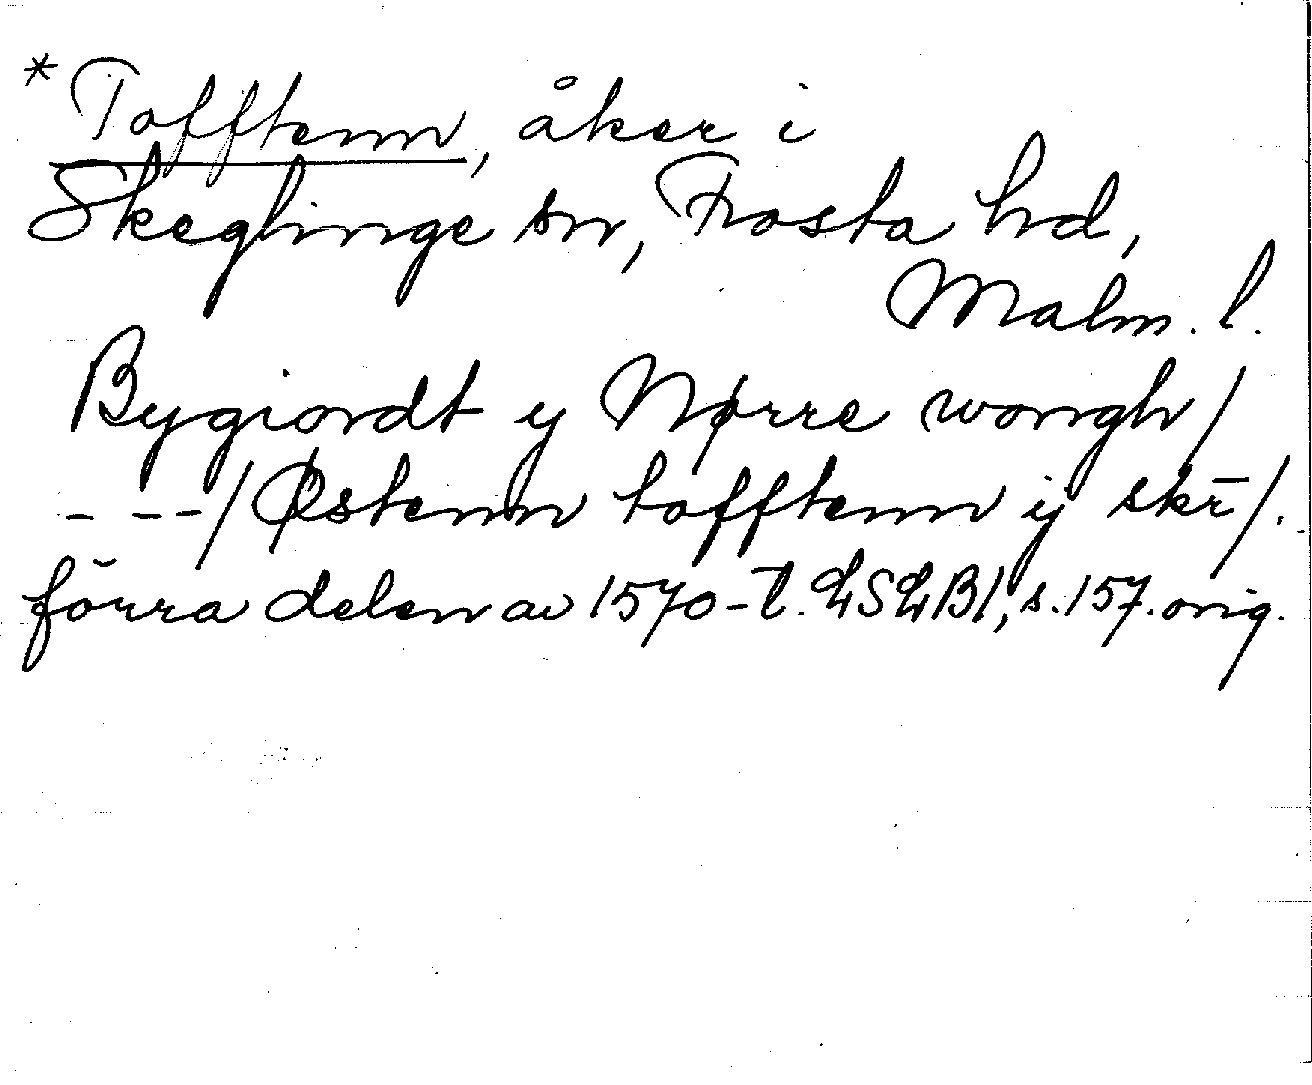 * Tofftenn, åker i
Skeglinge sn, Frosta hd,
Malm. l.
Bygiordt y Nørre wongh/
- --/Østenn tofftenn y skr̄/.
förra delen av 1570-t. s. 157. orig.